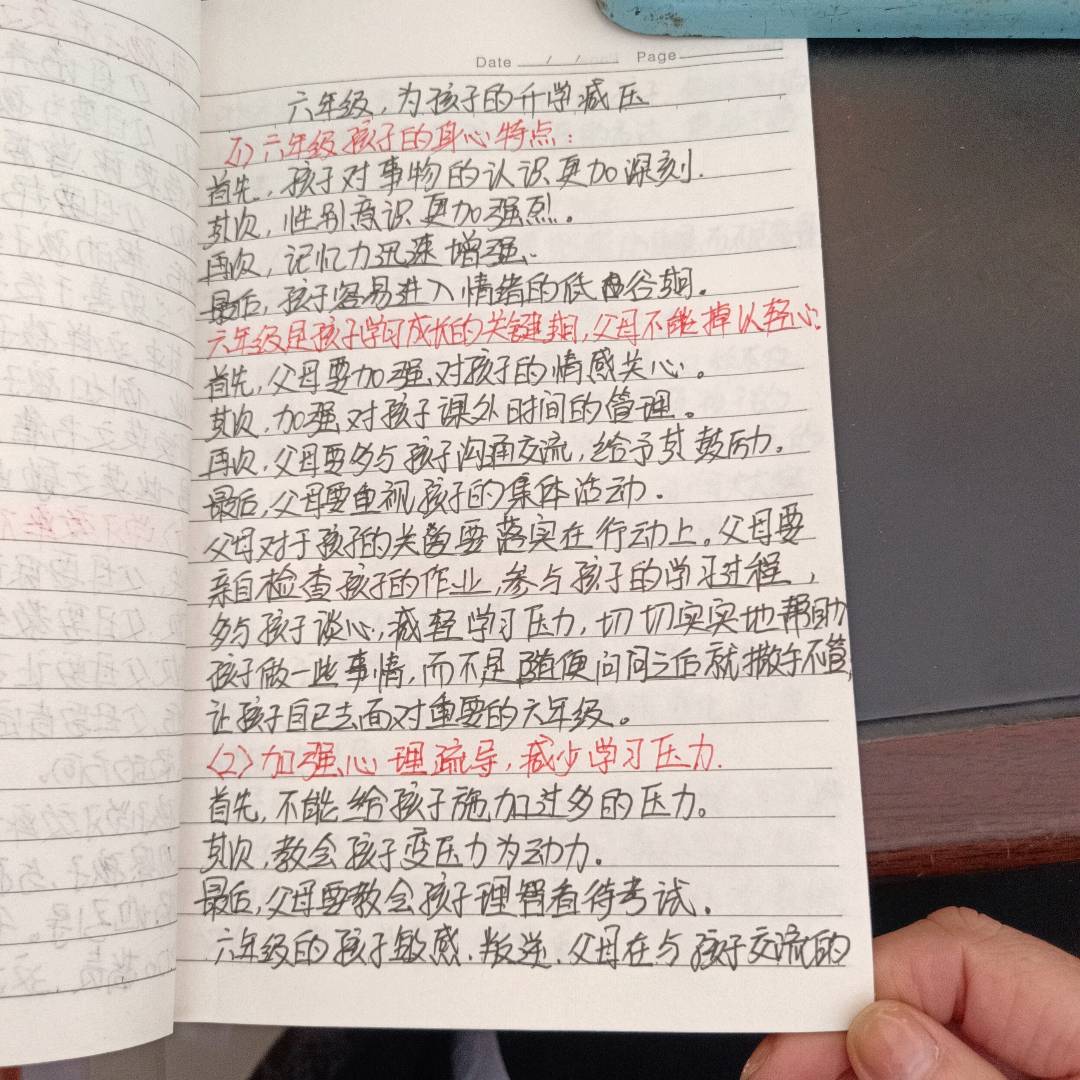 Date / / Page
六年级,为孩子的升学减压
(1)六年级孩子的身心特点:
首先,孩子对事物的认识更加深刻.
其次,性别意识更加强烈。
再次,记忆力迅速增强.
最后,孩子容易进入情绪的低谷期。
六年级是孩子学习成长的关键期,父母不能掉以轻心:
首先,父母要加强对孩子的情感关心。
其次.加强对孩子课外时间的管理。
再次.父母要多与孩子沟通交流,给予其鼓励。
最后,父母要重视孩子的集体活动.
父母对于孩子的关爱要落实在行动上。父母要
亲自检查孩子的作业,参与孩子的学习过程,
多与孩子谈心,减轻学习压力,切切实实地帮助
孩子做一些事情,而不是随便问问之后就撒手不管,
让孩子自己去面对重要的六年级。
(2)加强心理疏导,减少学习压力.
首先,不能给孩子施加过多的压力。
其次,教会孩子变压力为动力.
最后,父母要教会孩子理智看待考试.
六年级的孩子敏感.叛逆.父母在与孩子交流的